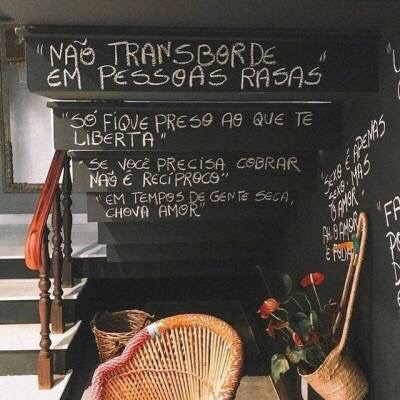 "NÃO TRANSBORDE
EM PESSOAS RASAS"
"SÓ FIQUE PRESO AO QUE TE
LIBERTA"
"SE VOCÊ PRECISA COBRAR
NÃO É RECÍPROCO"
"EM TEMPOS DE GENTE SECA,
CHOVA AMOR"
"SEXO É APENAS
SEXO, MAS
"O AMOR"
AH, O AMOR
É FODA